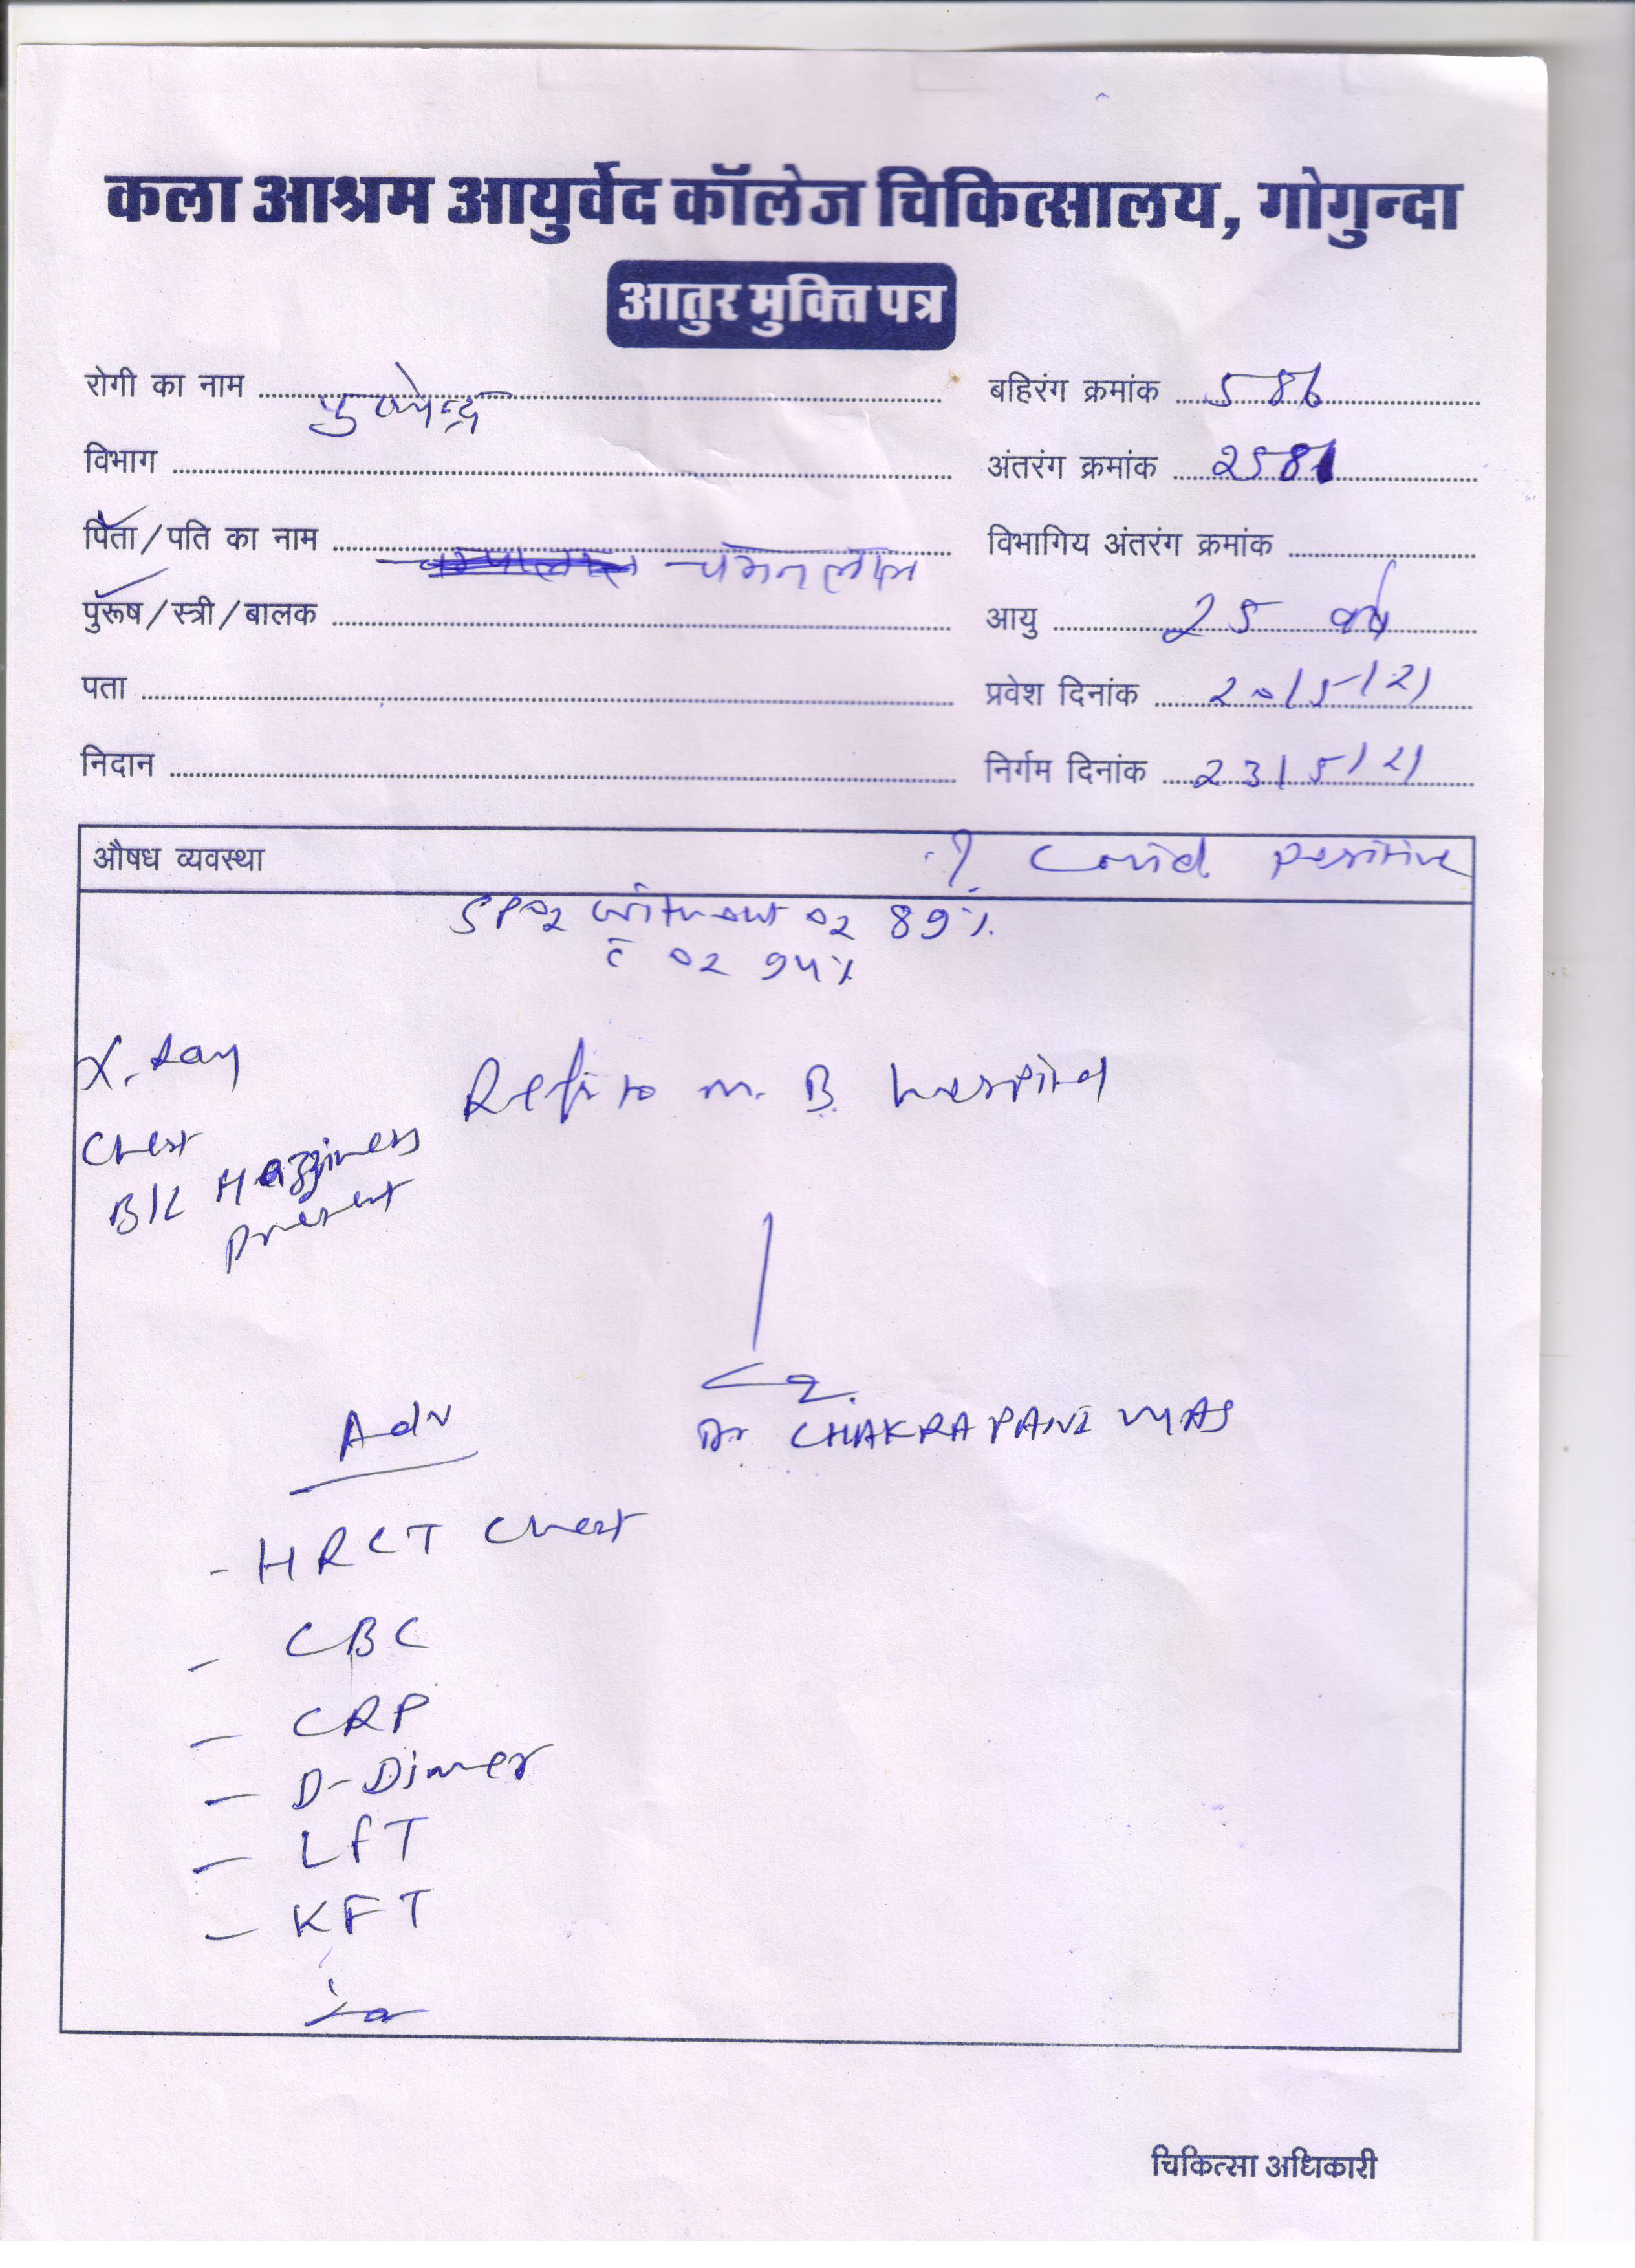 कला आश्रम आयुर्वेद कॉलेज चिकित्सालय, गोगुन्दा
आतुर मुक्ति पत्र
रोगी का नाम पुष्पेन्द्र बहिरंग क्रमांक 586
विभाग अंतरंग क्रमांक 2581
पिता/पति का नाम विभागिय अंतरंग क्रमांक
पुरूष/स्त्री/बालक आयु 25 वर्ष
पता प्रवेश दिनांक 20/5/21
निदान निर्गम दिनांक 23/5/21
औषध व्यवस्था ? Covid positive
SPO2 without O2 89%
c̄ O2 94%
X. Ray
Refer to M. B. hospital
Chest
B/L Hazziness
present
Adv
Dr CHAKRAPANI VYAS
- HRCT Chest
- CBC
- CRP
- D-Dimer
- LFT
- KFT
चिकित्सा अधिकारी